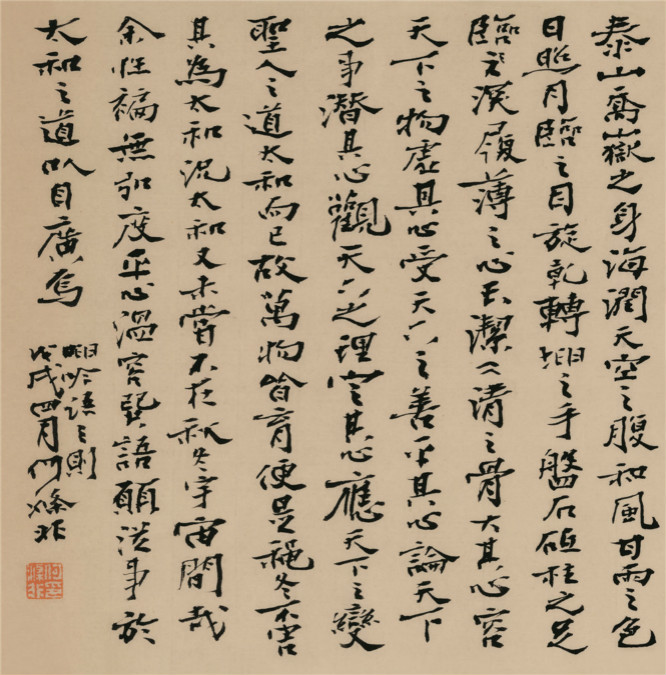 泰山喬嶽之身海濶天空之腹和風甘雨之色
日照月臨之目旋乾轉坤之手盤石砥柱之足
臨深履薄之心玉潔冰清之骨大其心容
天下之物虛其心受天下之善平其心論天下
之事潛其心觀天下之理定其心應天下之變
聖人之道太和而已故萬物皆育便是穐冬不害
其為太和況太和又未嘗不在秋冬宇宙間哉
余性褊無弘度平心溫容巽語願從事於
太和之道以自廣焉
呻吟語之則
戊戌四月何滌非